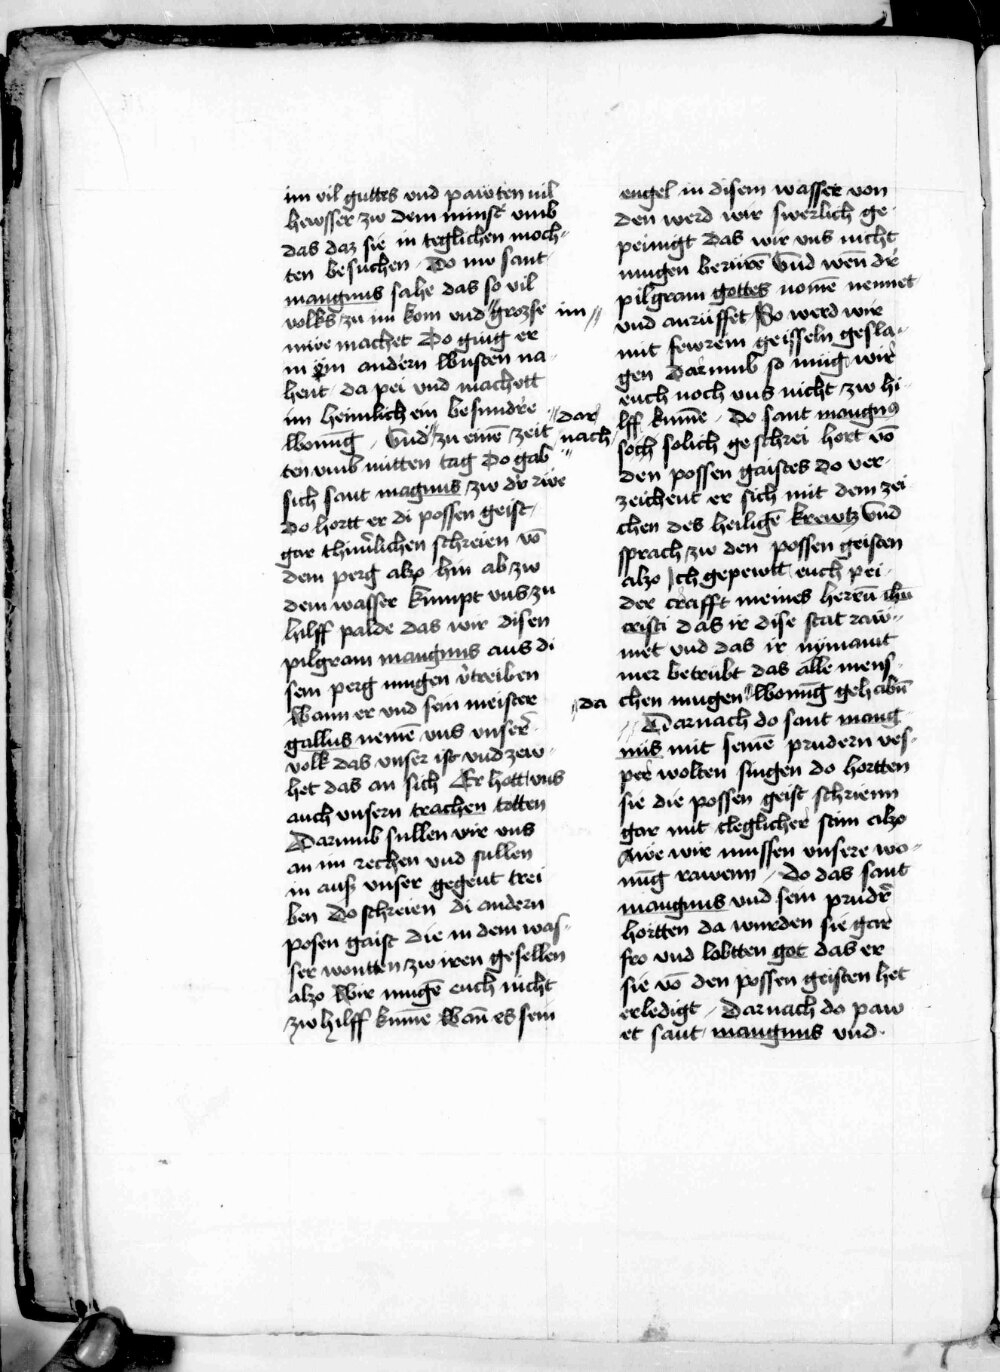 im vil guttes vnd pawten vil
hewsser zw dem minst vmb
das daz sie in teglichen moch-
ten besuchen Do nw sant
mangnus sahe das so vil
volks zu im kom vnd grozse
im
mwe machet Do ging er
in ein andern wusten na-
hent da pei vnd machott
im heimlich ein besundre
dar
nach
wonūg Vnd zu einē zeit
ten vmb mitten tag Do gab
sich sant magnus zw dr̄ rwe
Do hortt er di possen geist
gar schreien vō
dem perg alzo hin ab zw
dem wasser kumpt vns zu
hilff palde das wir disen
pilgram mangnus aus di
sem perg mugen v̄treiben
Wann er vnd sein meister
gallus nemē vns vnser
volk das vnser ist vnd zew-
het das an sich Er hott vns
auch vnsern trachen totten
Darumb sullen wir vns
an im rechen vnd sullen
in auß vnser gegent trei
ben Do schreien di andern
posen gaist die in dem was-
ser wontten zw iren gesellen
alzo Wir mugē euch nicht
zw hilff kumē Wañ es sein
engel in disem wasser von
den werd wir swerlich ge-
peinigt das wir vns nicht
mugen berurē Vnd wen dr̄
pilgram gottes nomē nennet
vnd anruffet So werd wir
mit fewrem geisseln gesla-
gen Darumb so mug wir
euch noch vns nicht zw hi-
lff kumē Do sant mangnus
soch solich geschrei hort vō
den possen gaistes do ver-
zeichent er sich mit dem zei
chen des heiligē krewtz Vnd
sprach zw den possen geisten
alzo Ich gepewtt euch pei
der crafft meines herrn ihū
cristi das ir dise stat raw-
met vnd das ir nymant
mer betrubt das alle mens-
da
chen mugen wonūg gehabn̄
Darnach do sant mang
nus mit seinē prudern ves-
per wolten singen do hortten
sie die possen geist schrienn
gar mit cleglicher stim alzo
Awe wir mussen vnsere wo-
nūg rawenn Do das sant
mangnus vnd sein prudr̄
hortten da wurden sie gar
fro vnd lobtten got das er
sie vō den possen geisten het
erledigt Darnach do paw
et sant mangnus vnd